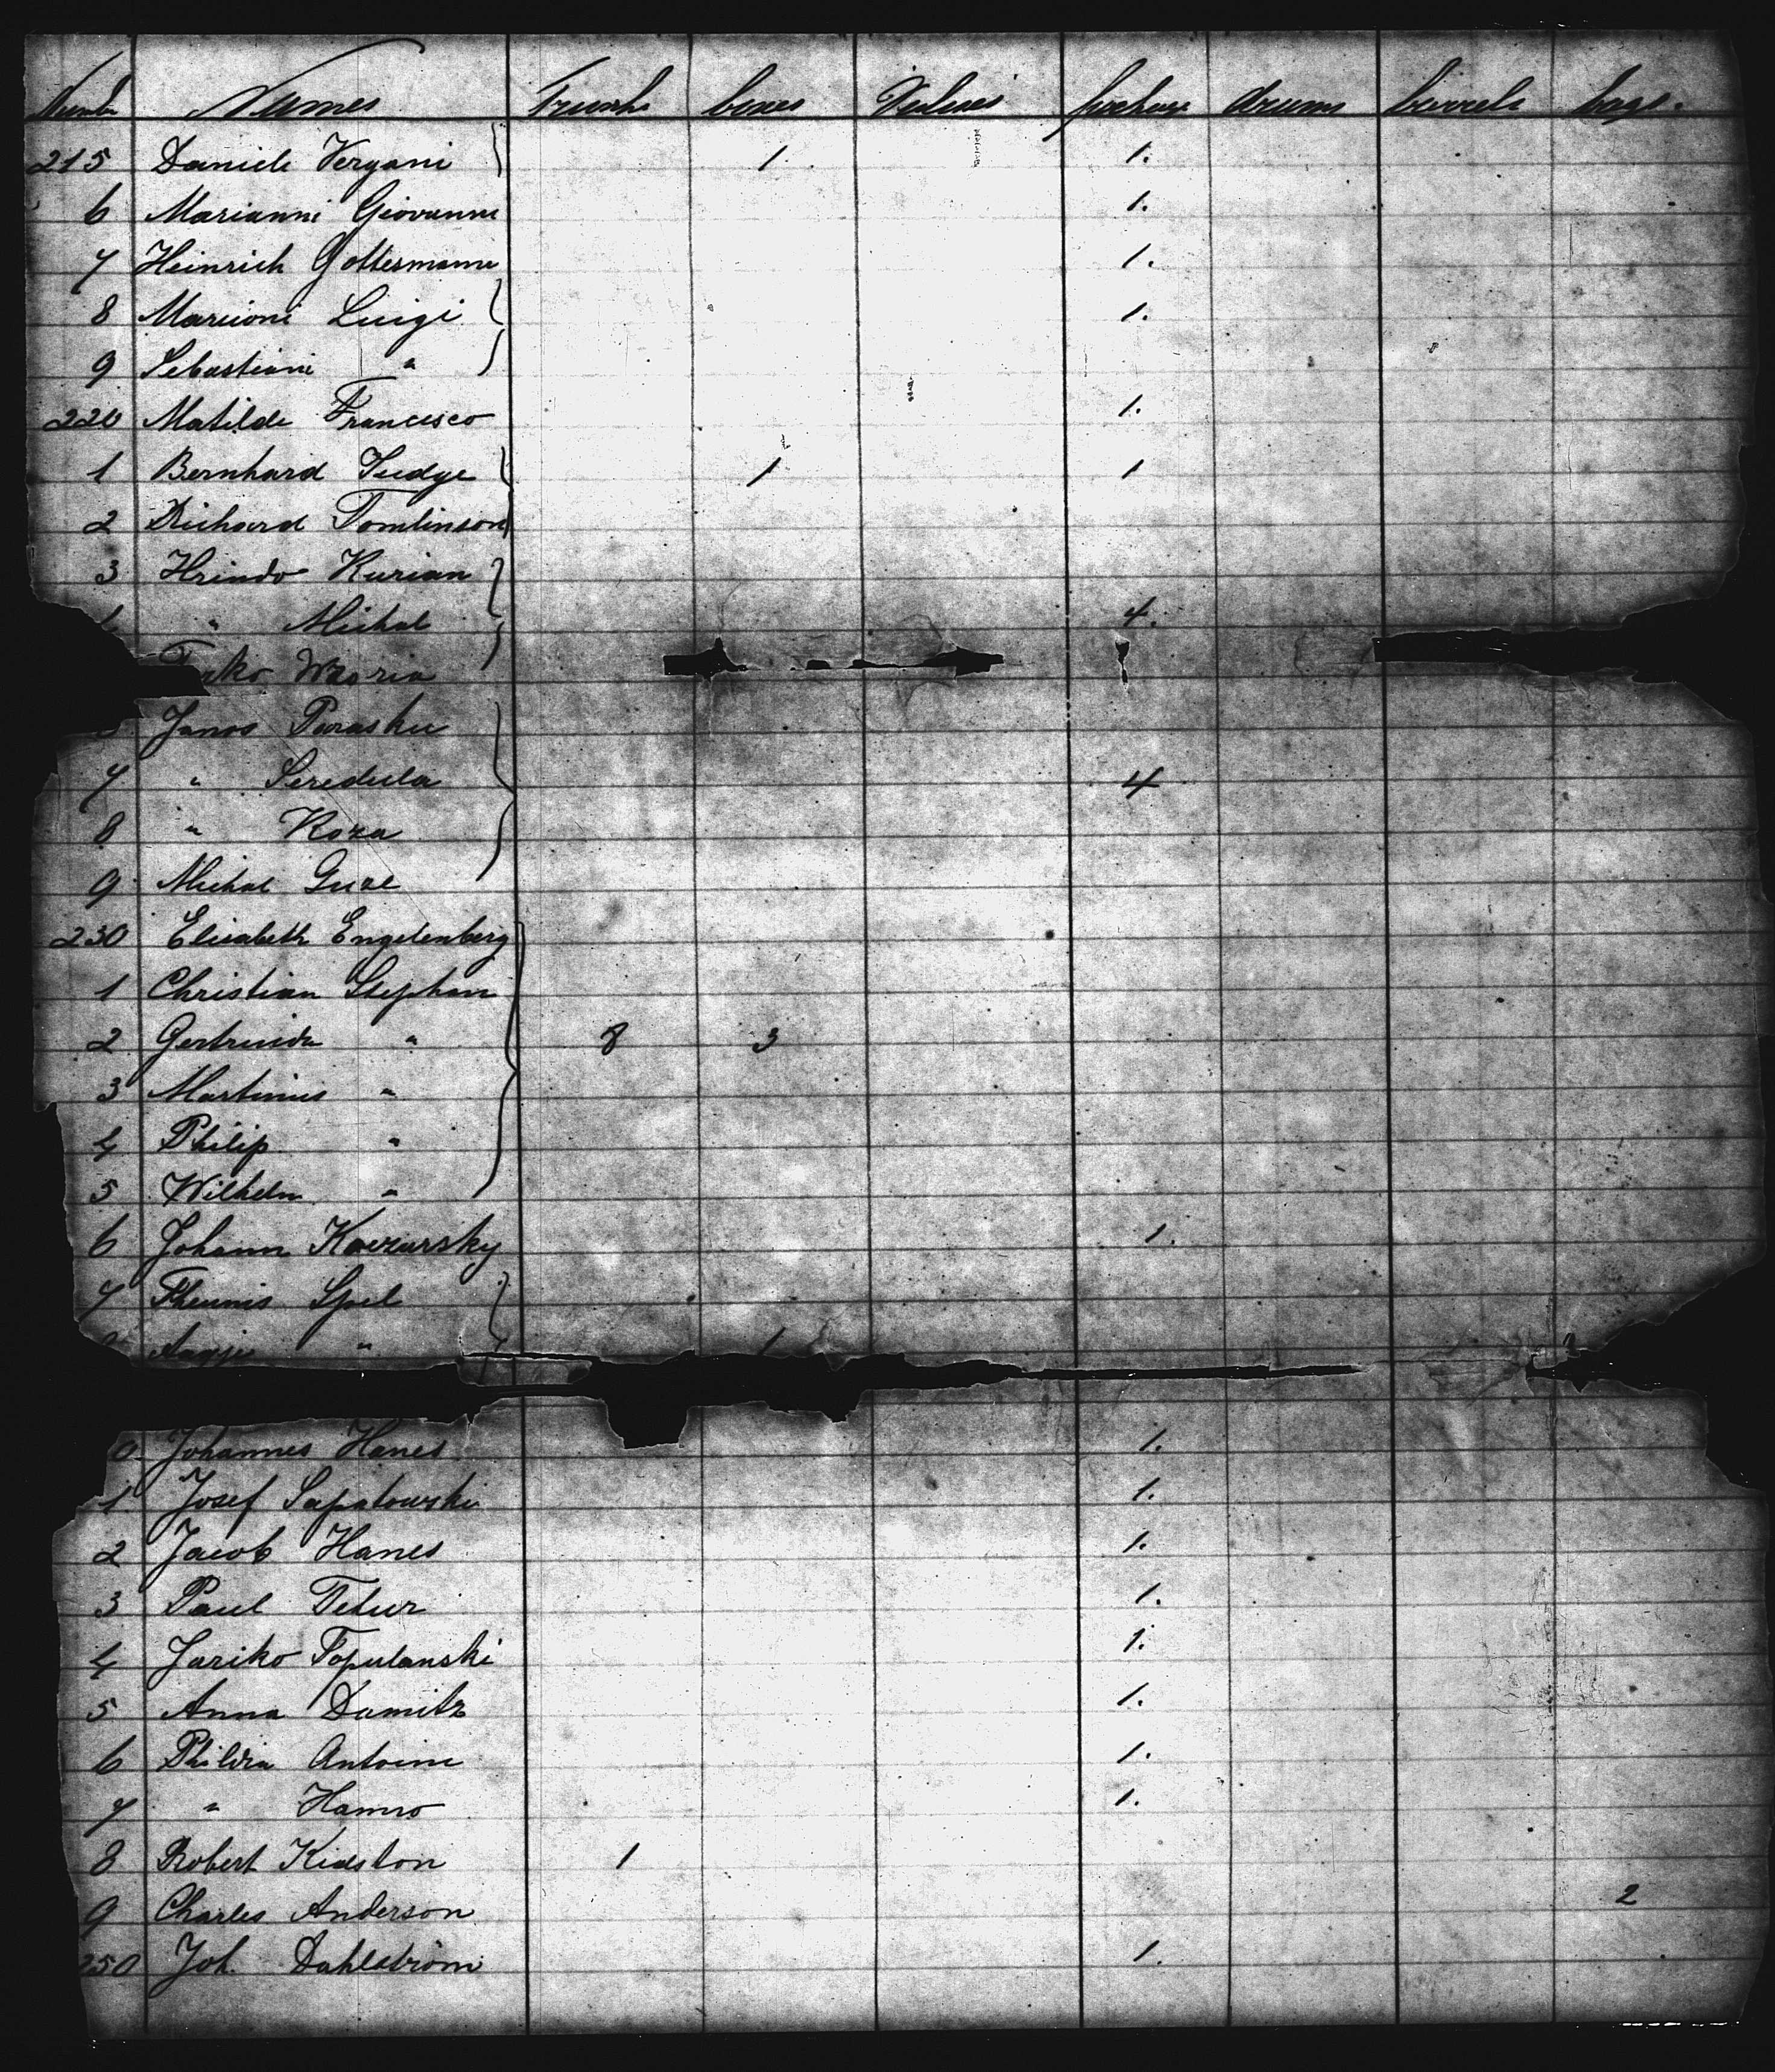 Numb Names Trunks boxes Valises package drums barrels bags.
215 Daniele Vergani 1. 1.
6 Marianni Giovanni 1.
7 Heinrich Gottermann 1.
8 Marcioni Luigi 1.
9 Sebastiani "
220 Matilde Francesco 1.
1 Bernhard Judge 1 1
2 Richard Tomlinson
3 Hrindo Kurian
" Michal 4.
Maria
Janos Parasku
7 " Seredula 4
8 " Roza
9 Michal Guze
230 Elisabeth Engelenberg
1 Christian Stephan
2 Gertruida " 8 3
3 Martinus "
4 Philip "
5 Wilhelm "
6 Johann Kaczursky 1.
7 Theunis Spel
Aagje " 1
0 Johannes Hanes 1.
1 Josef Sapatowski 1.
2 Jacob Hanes 1.
3 Paul Tetur 1.
4 Jariko Topulanski 1.
5 Anna Damitz 1.
6 Antoine 1.
7 " Hamro 1.
8 Robert Kidston 1
9 Charles Anderson 2
250 Joh. Dahlström 1.